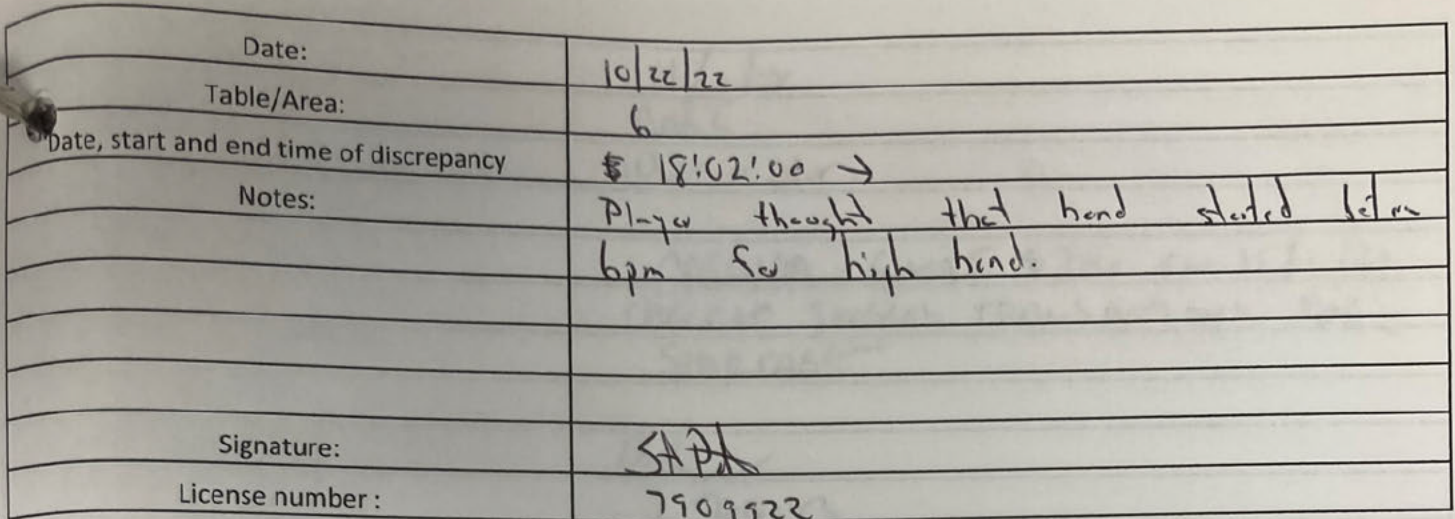 Date: 10/22/22
Table/Area: 6
Date, start and end time of discrepancy 18:02:00 →
Notes: Player thought that hand started before
6pm for high hand.
Signature:
License number : 7909922